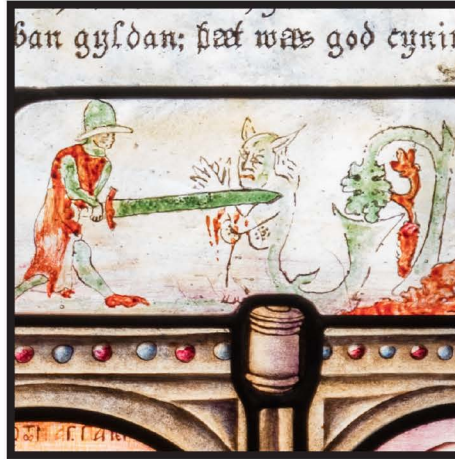 ban gyldan; þæt wæs god cynin